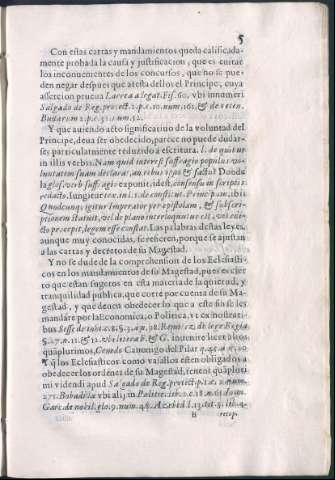 5
Con estas cartas y mandamientos quedó calificada-
mente probada la causa y justificacion, que es euitar
los inconuenientes de los concursos, que no se pue-
den negar despues que atesta dellos el Principe, cuya
assercion prueua Larrea allegat. Fis. 60. vbi innumeri
Salgado de Reg. protect. 2. p. c. 10. num. 161. & de retin.
Bullarum 2. p. c. 31. num. 52.
Y que auiendo acto significatiuo de la voluntad del
Principe, deua ser obedecido, parece no puede dudar-
se particularmente reducido à escritura l. de quibus
in illis verbis. Nam quid interest suffragio populus vo-
luntatem suam declaret, an rebus ipsis & factis? Donde
la glos. verb. suffragio exponit, idest, consensu in scriptis
redacto, iungitur tex. in l. 1. de constitut. Princip. in, ibi
Quodcunq; igitur Imperator per epistolam, & subscri-
ptionem statuit, vel de plano interloquutus est, vel edi-
cto precepit, legem esse constat. Las palabras destas leyes,
aunque muy conocidas, se refieren, porque se ajustan
a las cartas y decretos de su Magestad.
Y no se dude de la comprehension de los Eclesiasti-
cos en los mandamientos de su Magestad, pues es cier
to que estan sugetos en esta materia de la quietud, y
tranquilidad publica, que corre por cuenta de su Ma-
gestad, y que deuen obedecer lo que a este fin se les
mandare por la Economica, o Politica, vt ex nostrati-
bus Sesse
quamplurimos, Canedo Canonigo del Pilar
Y q̃ los Eclesiasticos como vasallos esten obligados a
obedecer los ordenes de su Magestad, tenent quampluri
mi videndi apud Salgado de Reg. protect. p. 1. c. 2. num.
271. Bobadilla vbi alij in Politic. lib. 2. c. 18. n. 61. do m.
Garc. de nobil. glo. 9. num. 48. Azebed. l. 13. tit. 3. lib. 4.
B recop.